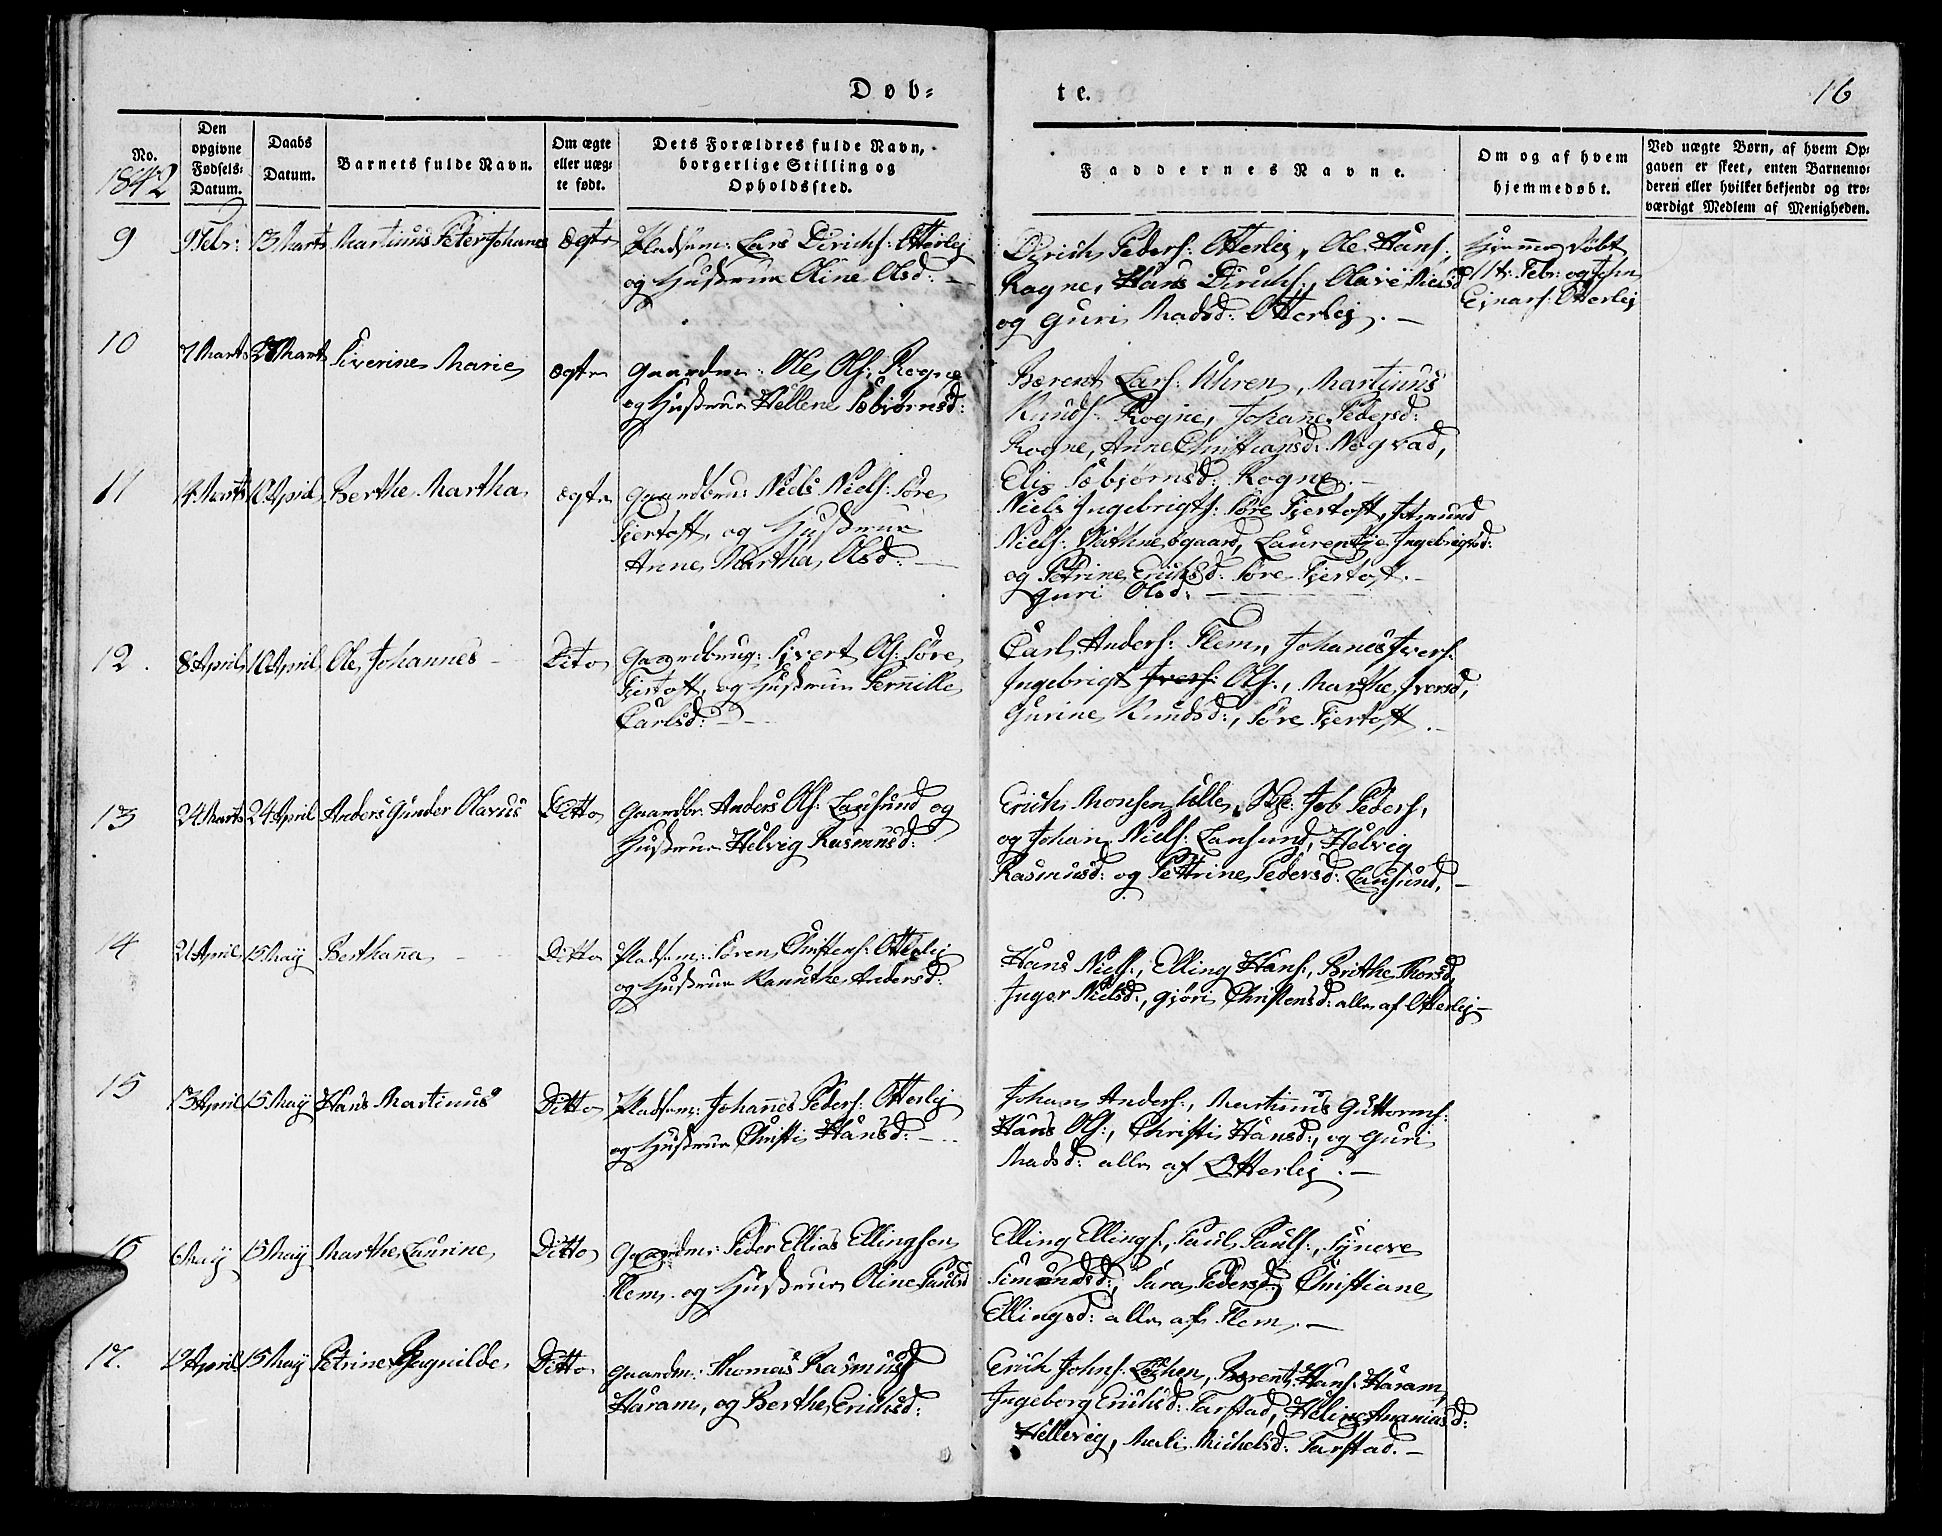 Døb=
te.
16
No.
1842
Den
opgivne
Fødsels-
Datum.
Daabs
Datum.
Barnets fulde Navn.
Om ægte
eller uæg-
te født.
Dets Forældres fulde Navn,
borgerlige Stilling og
Opholdssted.
Faddernes Navne.
Om og af hvem
hjemmedøbt.
Ved uægte Børn, af hvem Op-
gaven er skeet, enten Barnemo-
deren eller hvilket bekjendt og tro-
værdigt Medlem af Menigheden.
9
9 Febr:
13 Marts
Martinus Peter Johanes
ægte
Pladsm: Lars Dirichs: Otterlej
og Hustrue Oline Olsd: -
Dirich Peders: Otterlej, Ole Hans:
Rogne, Hans Dirichs:, Olave Nielsd
og Guri Madsd: Otterlej. -
Hjemmedøbt
11te Febr: og John
Einars: Otterlej
10
7 Marts
28 Marts
Siverine Marie
ægte
Gaardm: Ole Ols: Rogne
og Hustrue Hellene Sæbiørnsd:
Berent Lars: Uhren, Martinus
Knuds: Rogne, Johanne Pedersd:
Rogne, Anne Christiansd: Nogvad,
Elis Sæbjørnsd: Rogne. -
11
14 Marts
10 April
Berthe Martha
ægte
Gaardbru: Niels Niels: Søre
Fiertoft, og Hustrue
Anne Martha Olsd: -
Niels Ingebrigts: Søre Fjertoft, Asmund
Niels: Giathnesøgaard, Laurentze Ingebrigtsd:
og Petrine Erichsd: Søre Fiertoft. -
Guri Olsd: -
12.
8 April
10 April
Ole Johannes -
Dito
Gaardbrug: Sivert Ols: Søre
Fiertoft, og Hustrue Pernille
Carlsd: -
Carl Anders: Flem, Johanes Ivers:
Ingebrigt Ivers: Ols:, Marthe Iversd,
Gurine Knudsd:, Søre Fjertoft. -
13
24 Marts
24 April
Anders Gunder Olavus
Ditto
Gaardbr: Anders Ols: Lausund og
Hustrue Helvig Rasmusd:
Erich Monsen Ulle, Job Peders,
og Johan Niels: Lausund, Helvig
Rasmusd: og Pettrine Pedersd: Lausund, -
14
21 April
15 Maij
Berthanna -
Ditto
Pladsm: Søren Christens: Otterlej
og Hustrue Kanuthe Andersd:
Hans Niels:, Elling Hans:, Brithe Thorsd,
Inger Nielsd:, Gjøri Christensd: alle af Otterlej -
15
13 April
15 Maij
Hans Martinus
Ditto
Pladsm: Johannes Peders: Otterlej
og Hustrue Christi Hansd: -
Johan Anders:, Martinus Guttorms:
Hans Ols:, Christi Hansd:, og Guri
Madsd: alle af Otterlej. -
16
6 Maij
15 Maij
Marthe Laurine
Ditto
Gaardm: Peder Ellias Ellingsen
Flem. og Hustrue Oline Paulsd
Elling Ellings:, Paul Pauls:, Syneve
Simundsd:, Sara Pedersd:, Christiane
Ellingsd: alle af Flem. -
17.
12 April
15 Maij
Petrine Ragnilde
Ditto
Gaardm: Thomas Rasmus:
Haram, og Berthe Erichsd:
Erich Johns: Løchen, Berent Hans: Haram,
Ingeborg Erichsd: Farstad, Heline Ananiasd:
Hellevig, Mali Michelsd: Farstad. -